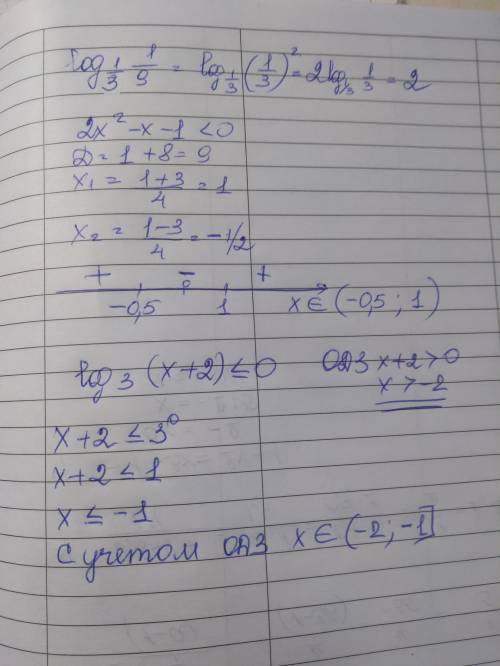 log_{1/3} 1/9 = log_{1/3} (1/3)² = 2log_{1/3} 1/3 = 2
2x² - x - 1 < 0
D = 1 + 8 = 9
x₁ = (1+3)/4 = 1
x₂ = (1-3)/4 = -1/2
+ - +
-0,5 1 x ∈ (-0,5 ; 1)
log₃ (x+2) ≤ 0 ОДЗ x+2 > 0
x > -2
x + 2 ≤ 3⁰
x + 2 ≤ 1
x ≤ -1
С учетом ОДЗ x ∈ (-2; -1]